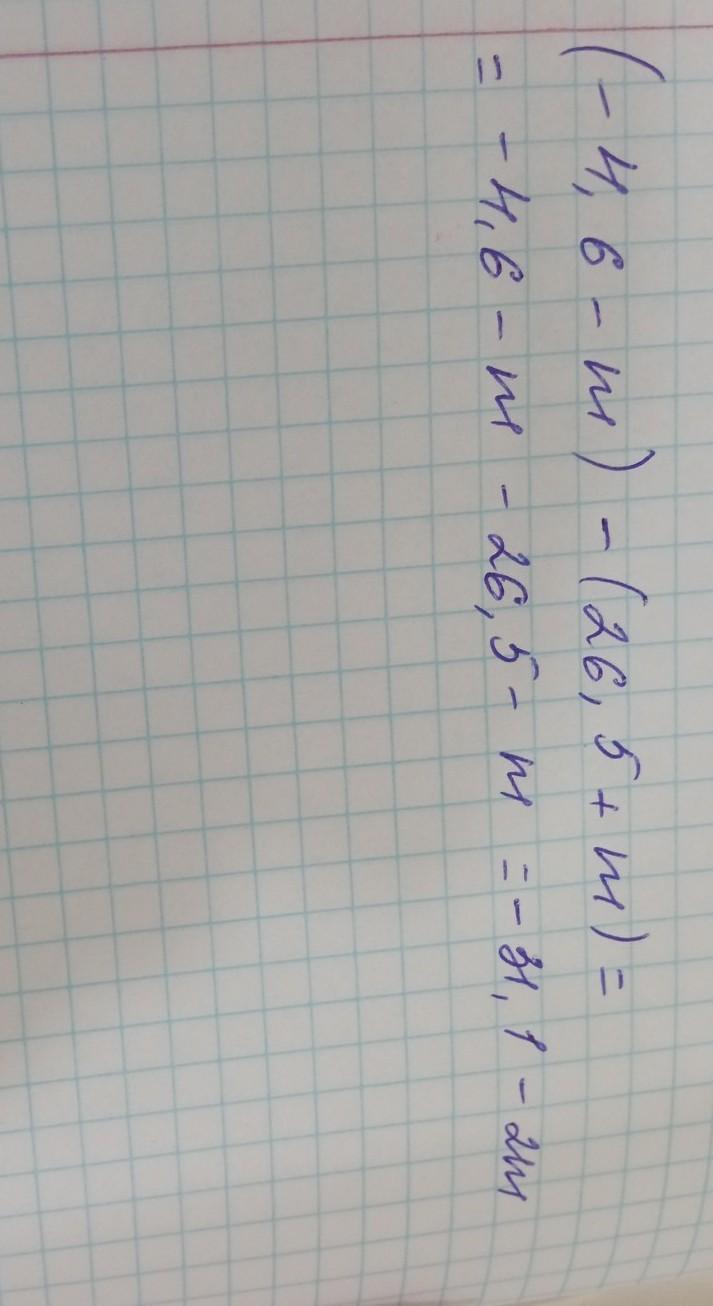 (-4,6-m)-(26,5+m)=
=-4,6-m-26,5-m=-31,1-2m